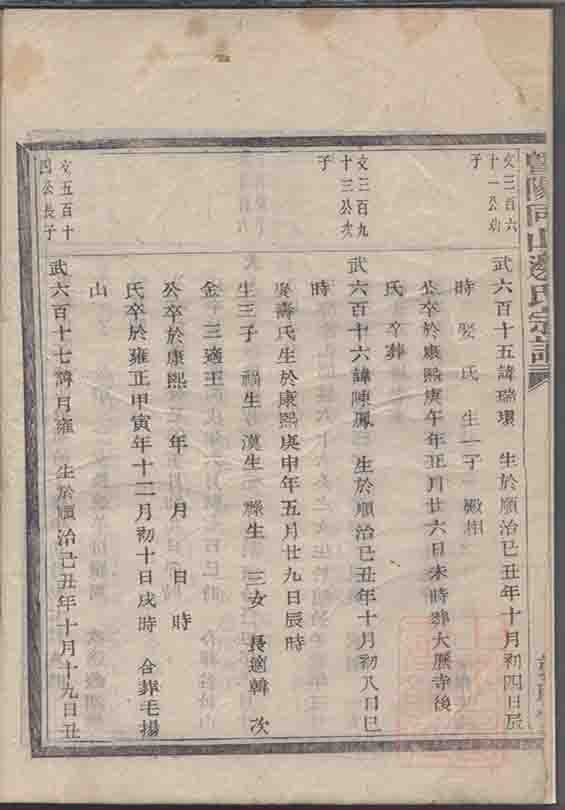 暨陽同山邊氏宗譜
文三百六
十一公幼
子
武六百十五諱瑞環 生於順治己丑年十月初四日辰
時 娶 氏 生一子 殿相
公卒於康熙庚午年正月廿六日未時葬大歷寺後
氏 卒 葬
文三百九
十三公次
子
武六百十六諱陳鳳 生於順治己丑年十月初八日巳
時
娶壽氏生於康熙庚申年五月廿九日辰時
生三子 福生 漢生 祿生 三女 長適韓 次
金 三適王
公卒於康熙 年 月 日 時
氏卒於雍正甲寅年十二月初十日戌時 合葬毛揚
山
文五百十
四公長子
武六百十七諱月雍 生於順治己丑年十月十九日丑